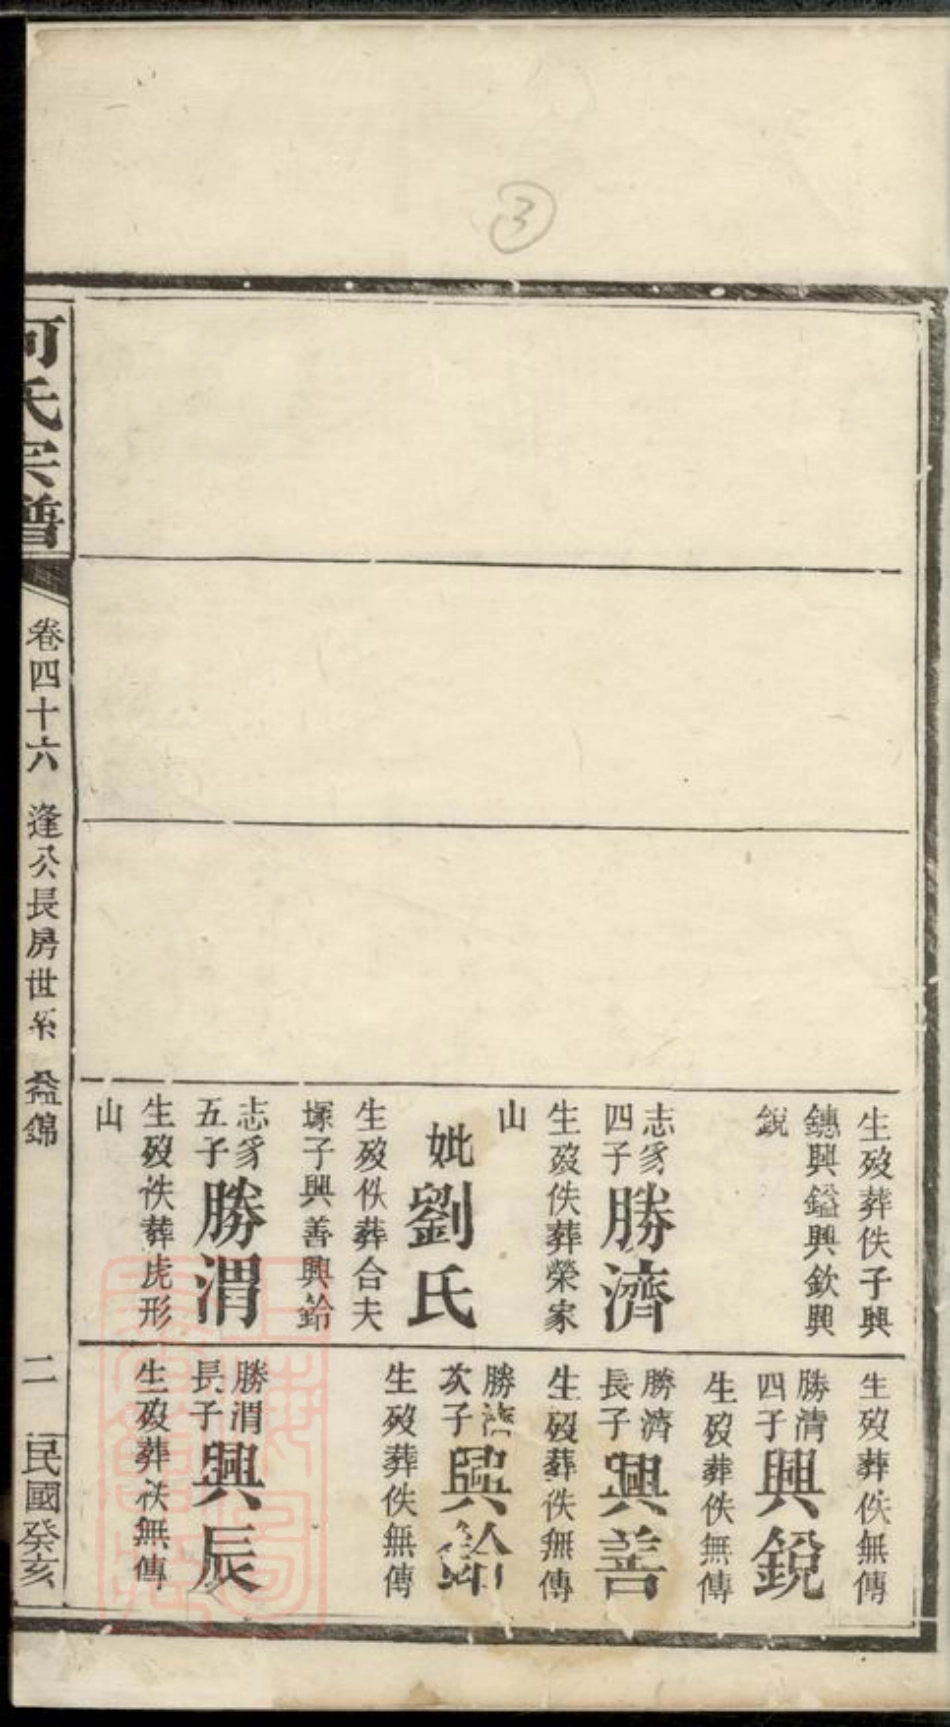 ③
生歿葬佚子興
鏸興鎰興欽興
銳
志豸
四子
勝濟
生歿佚葬榮家
山
妣劉氏
生歿佚葬合夫
塚子興善興鈴
志豸
五子
勝渭
生歿佚葬虎形
山
生歿葬佚無傳
勝清
四子
興銳
生歿葬佚無傳
勝濟
長子
興善
生歿葬佚無傳
勝濟
次子
興鈴
生歿葬佚無傳
勝渭
長子
興辰
生歿葬佚無傳
何氏宗譜
卷四十六 逢公長房世系 益錦
二 民國癸亥